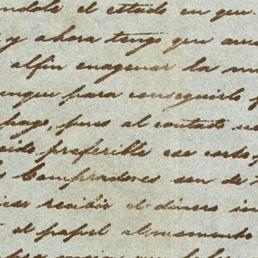 ndole el estado en que
y ahora tengo que anu
alfin enagenar la m
unque para conseguirlo
pago, pues al contado no
sido preferible ese corto p
s compradores son de
recibir el dinero in
el papel